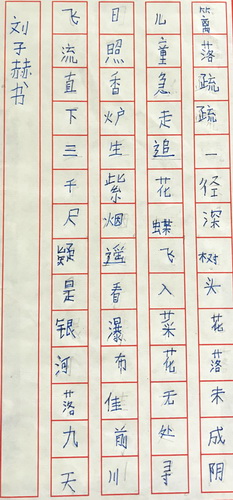 篱落疏疏一径深树头花落未成阴
儿童急走追花蝶飞入菜花无处寻
日照香炉生紫烟遥看瀑布佳前川
飞流直下三千尺疑是银河落九天
刘子赫书